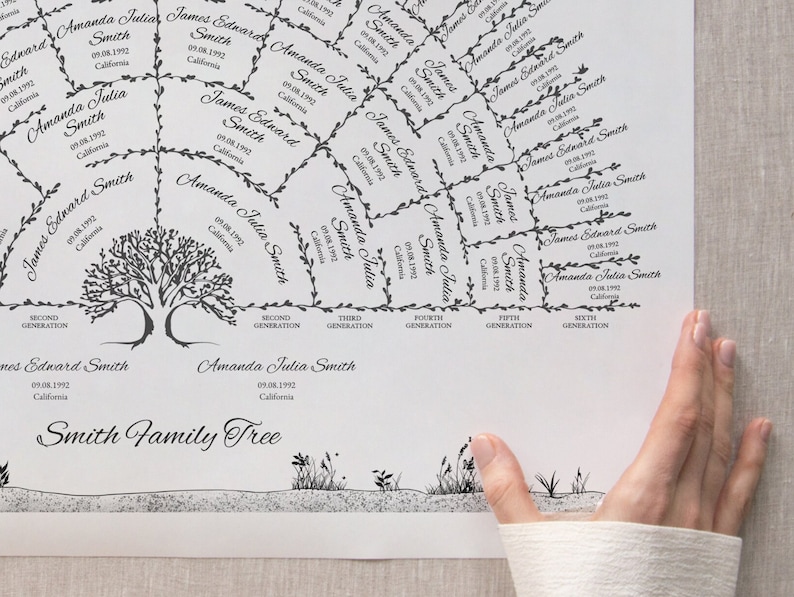 Amanda Julia
Smith
09.08.1992
California
James Edward
Smith
09.08.1992
California
James Edward
Smith
09.08.1992
California
Amanda Julia
Smith
09.08.1992
California
James Edward
Smith
09.08.1992
California
Amanda Julia
Smith
09.08.1992
California
James Edward
Smith
09.08.1992
California
James Edward Smith
09.08.1992
California
Amanda Julia Smith
09.08.1992
California
James Edward
Smith
09.08.1992
California
Amanda Julia
Smith
09.08.1992
California
Amanda Julia
Smith
09.08.1992
California
James
Smith
09.08.1992
California
Amanda
Smith
09.08.1992
California
James
Smith
09.08.1992
California
Amanda
Smith
09.08.1992
California
Amanda Julia Smith
09.08.1992
California
James Edward Smith
09.08.1992
California
Amanda Julia Smith
09.08.1992
California
James Edward Smith
09.08.1992
California
Amanda Julia Smith
09.08.1992
California
James Edward Smith
09.08.1992
California
Amanda Julia Smith
09.08.1992
California
SECOND
GENERATION
SECOND
GENERATION
THIRD
GENERATION
FOURTH
GENERATION
FIFTH
GENERATION
SIXTH
GENERATION
mes Edward Smith
09.08.1992
California
Amanda Julia Smith
09.08.1992
California
Smith Family Tree